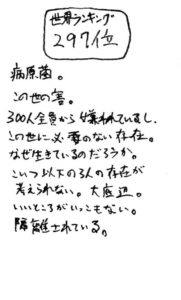 世界ランキング
297位
病原菌。
この世の害。
300人全員から嫌われているし、
この世に必要のない存在。
なぜ生きているのだろうか。
こいつ以下の3人の存在が
考えられない。大底辺。
いいところがいっこもない。
隔離されている。